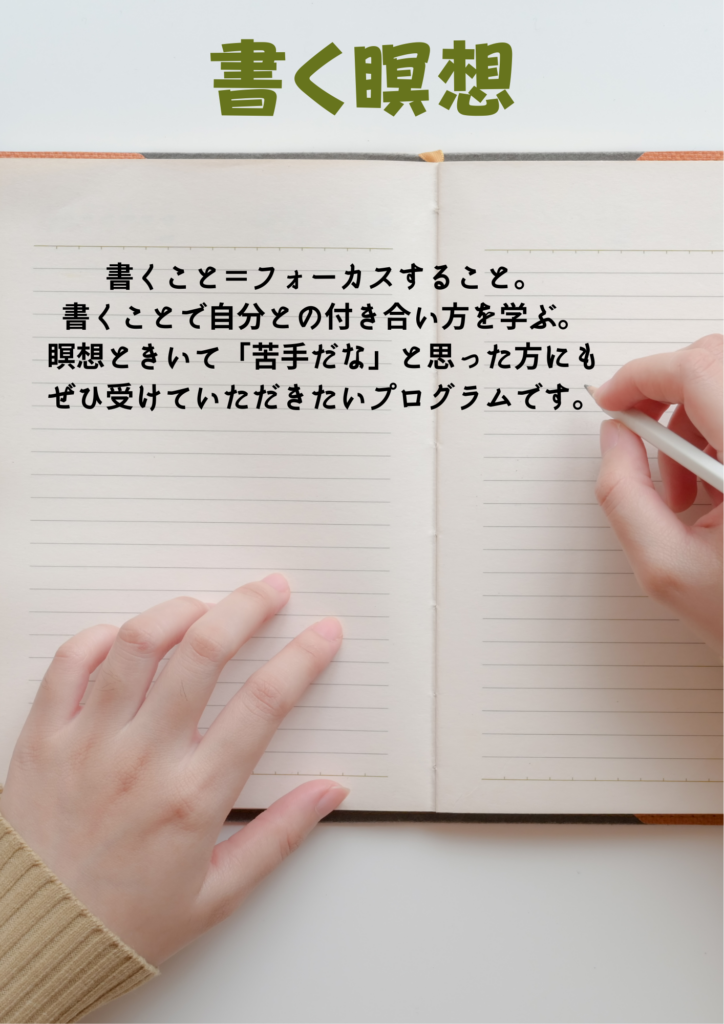 書く瞑想
書くこと＝フォーカスすること。
書くことで自分との付き合い方を学ぶ。
瞑想ときいて「苦手だな」と思った方にも
ぜひ受けていただきたいプログラムです。